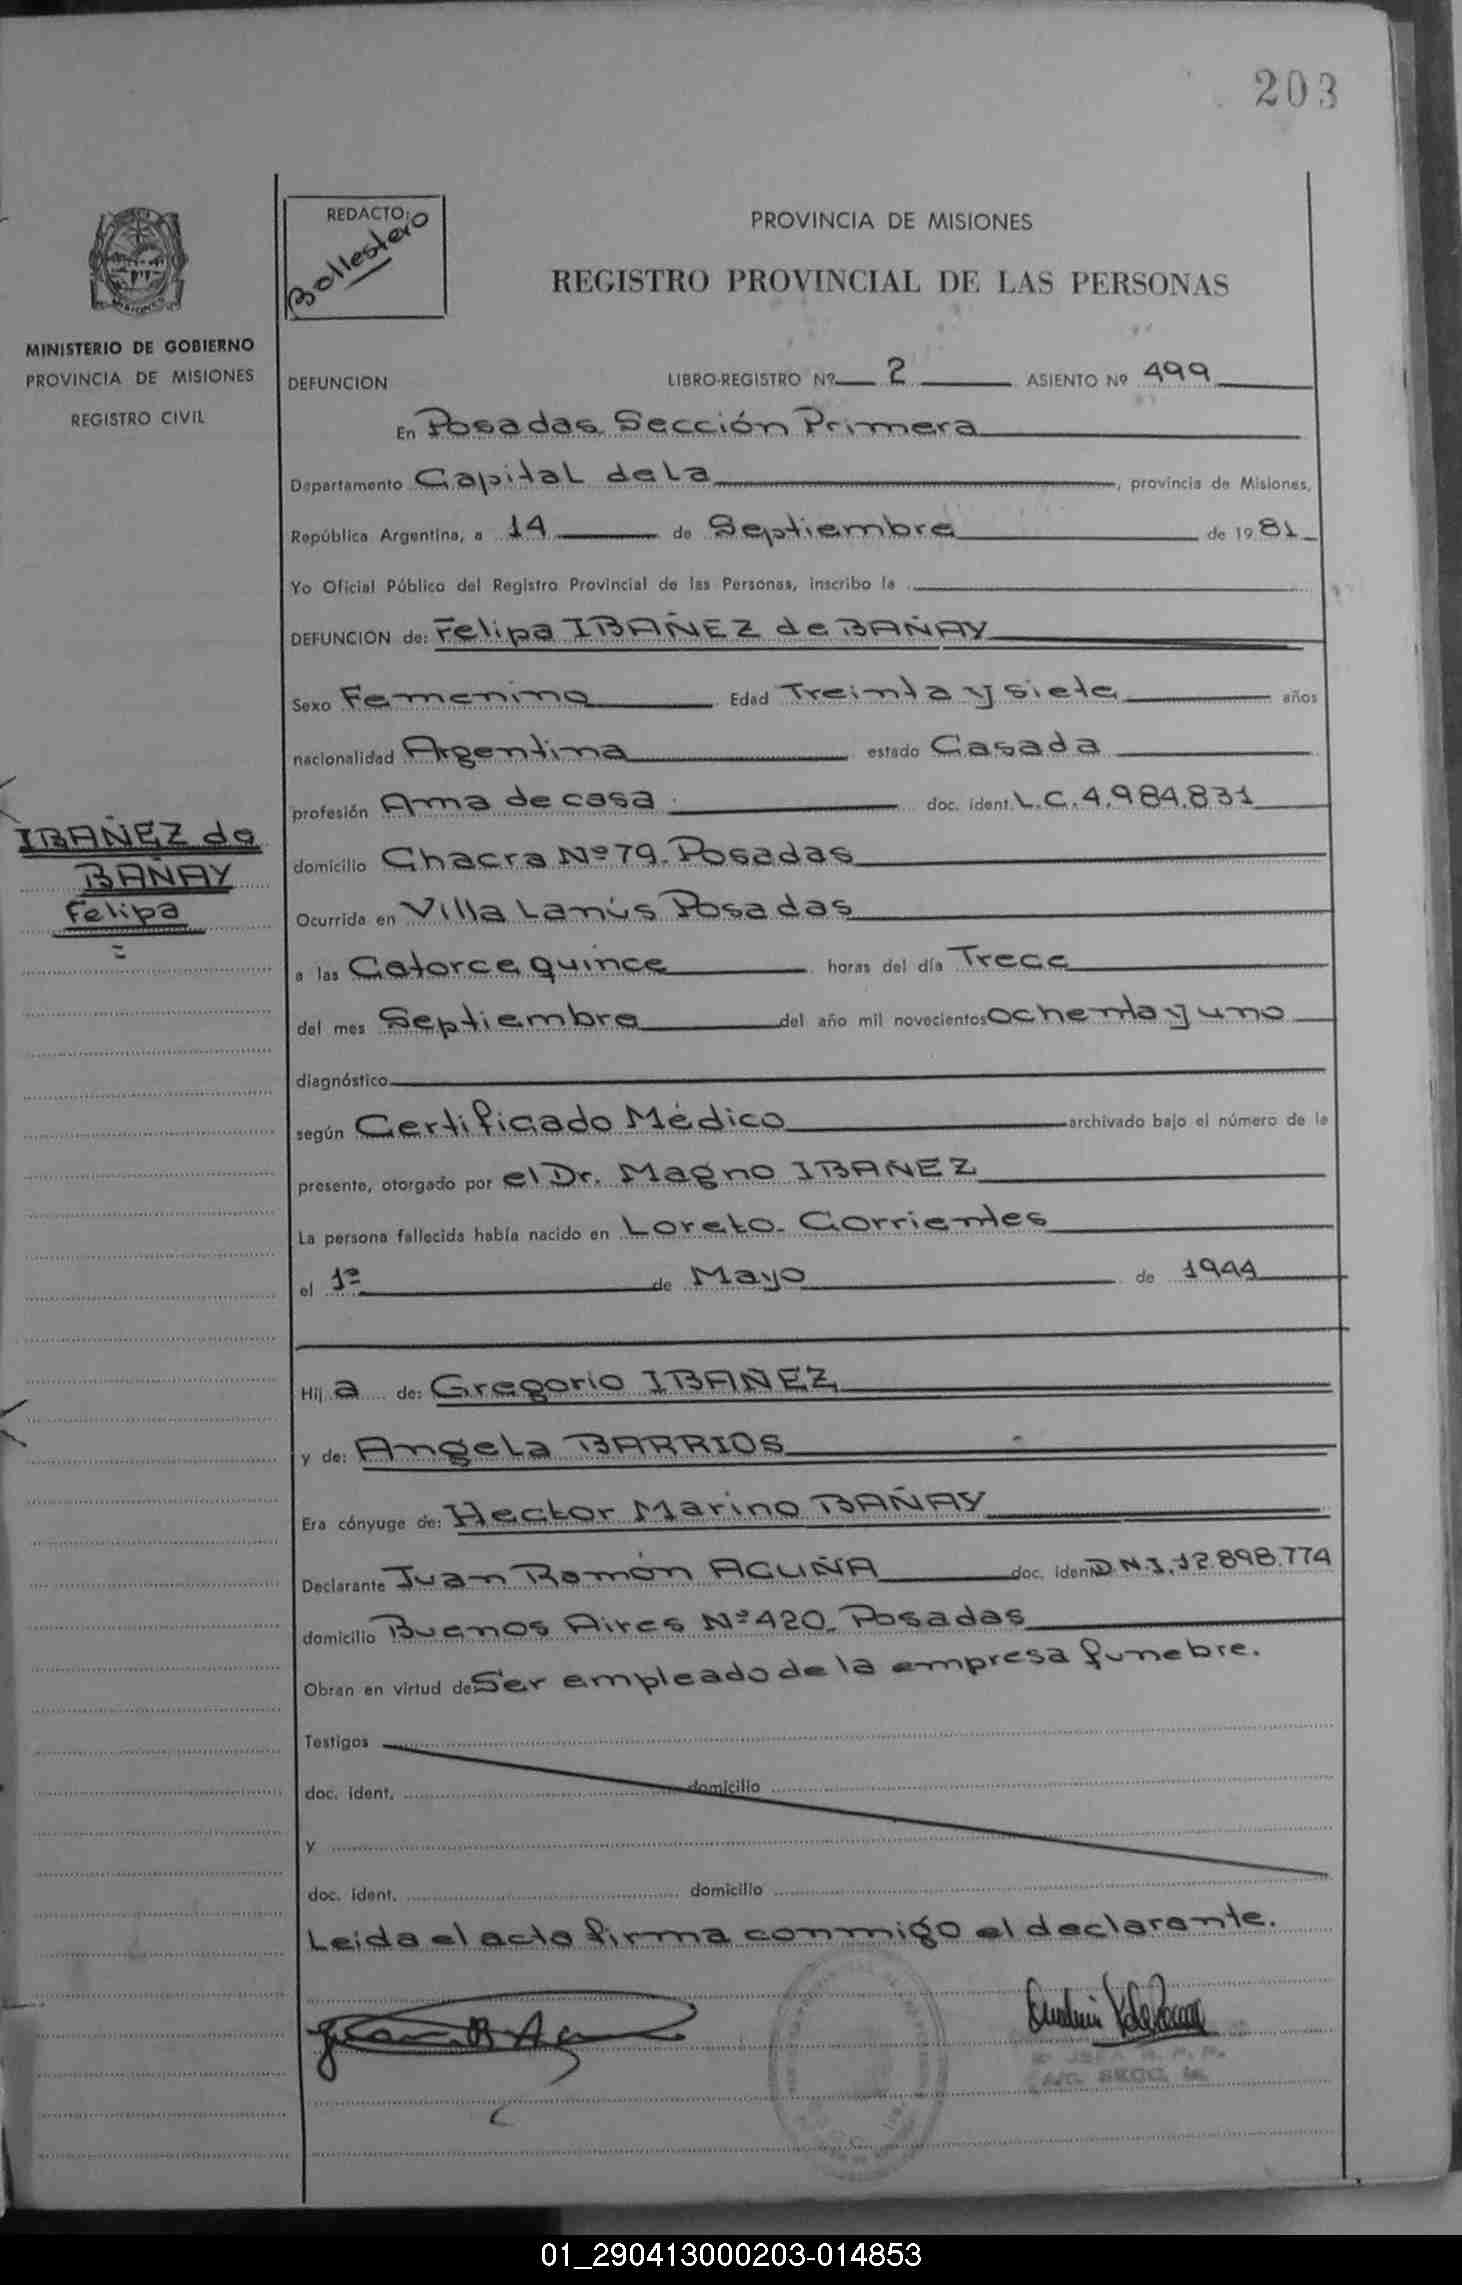 203
REDACTO:
Ballestero
PROVINCIA DE MISIONES
REGISTRO PROVINCIAL DE LAS PERSONAS
MINISTERIO DE GOBIERNO
PROVINCIA DE MISIONES
REGISTRO CIVIL
DEFUNCION LIBRO-REGISTRO Nº 2 ASIENTO Nº 499
En Posadas Sección Primera
Departamento Capital de la, provincia de Misiones,
República Argentina, a 14 de Septiembre de 1981
Yo Oficial Público del Registro Provincial de las Personas, inscribo la
DEFUNCION de: Felipa IBAÑEZ de BAÑAY
Sexo Femenino Edad Treinta y siete años
nacionalidad Argentina estado Casada
profesión Ama de casa doc. ident. L.C. 4.984.831
IBAÑEZ de
BAÑAY
Felipa
domicilio Chacra Nº 79. Posadas
Ocurrida en Villa Lanús Posadas
a las Catorce quince horas del día Trece
del mes Septiembre del año mil novecientos ochenta y uno
diagnóstico
según Certificado Médico archivado bajo el número de la
presente, otorgado por el Dr. Magno IBAÑEZ
La persona fallecida había nacido en Loreto- Corrientes
el 1º de Mayo de 1944
Hij a de: Gregorio IBAÑEZ
y de: Angela BARRIOS
Era cónyuge de: Hector Marino BAÑAY
Declarante Juan Ramón ACUÑA doc. ident. D.N.I. 12.898.774
domicilio Buenos Aires Nº 420. Posadas
Obran en virtud de Ser empleado de la empresa funebre.
Testigos
doc. ident. domicilio
y
doc. ident. domicilio
Leida el acta firma conmigo el declarante.
01_290413000203-014853